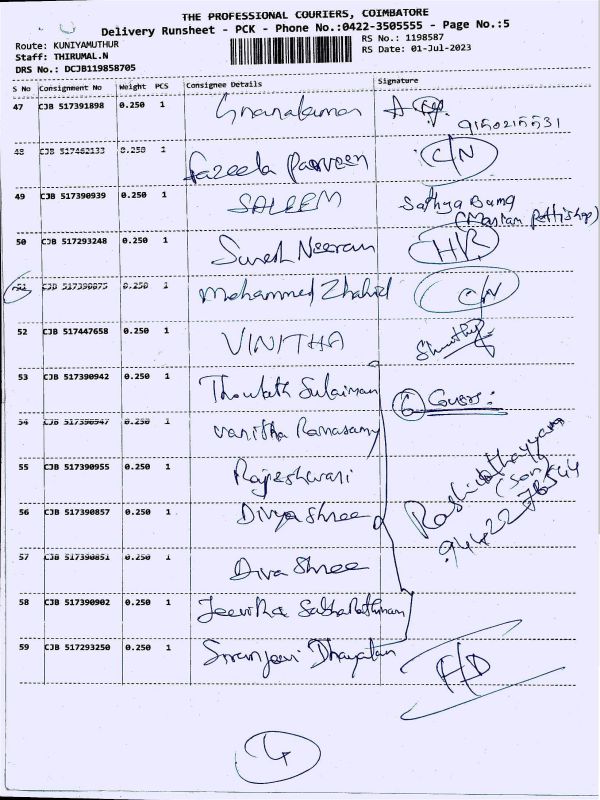 THE PROFESSIONAL COURIERS, COIMBATORE
Delivery Runsheet - PCK - Phone No.:0422-3505555 - Page No.:5
Route: KUNIYAMUTHUR
Staff: THIRUMAL.N
DRS No.: DCJB119858705
RS No.: 1198587
RS Date: 01-Jul-2023
S No Consignment No Weight PCS Consignee Details Signature
47 CJB 517391898 0.250 1 Gnanakumar
48 CJB 517462133 0.250 1 Fazeela Parveen C/N
49 CJB 517390939 0.250 1 SALEEM Sathya Bama
50 CJB 517293248 0.250 1 Suresh Neeran HR
51 CJB 517390875 0.250 1 Mohammed Zhahid C/N
52 CJB 517447658 0.250 1 VINITHA
53 CJB 517390942 0.250 1 Thowlath Sulaiman 6 Covers:
54 CJB 517390947 0.250 1 Vanitha Ramasamy
55 CJB 517390955 0.250 1 Rajeshwari
(Son)
56 CJB 517390857 0.250 1 Divya Shree
57 CJB 517390851 0.250 1 Diva Shree
58 CJB 517390902 0.250 1 Jeevitha
59 CJB 517293250 0.250 1 HD
4